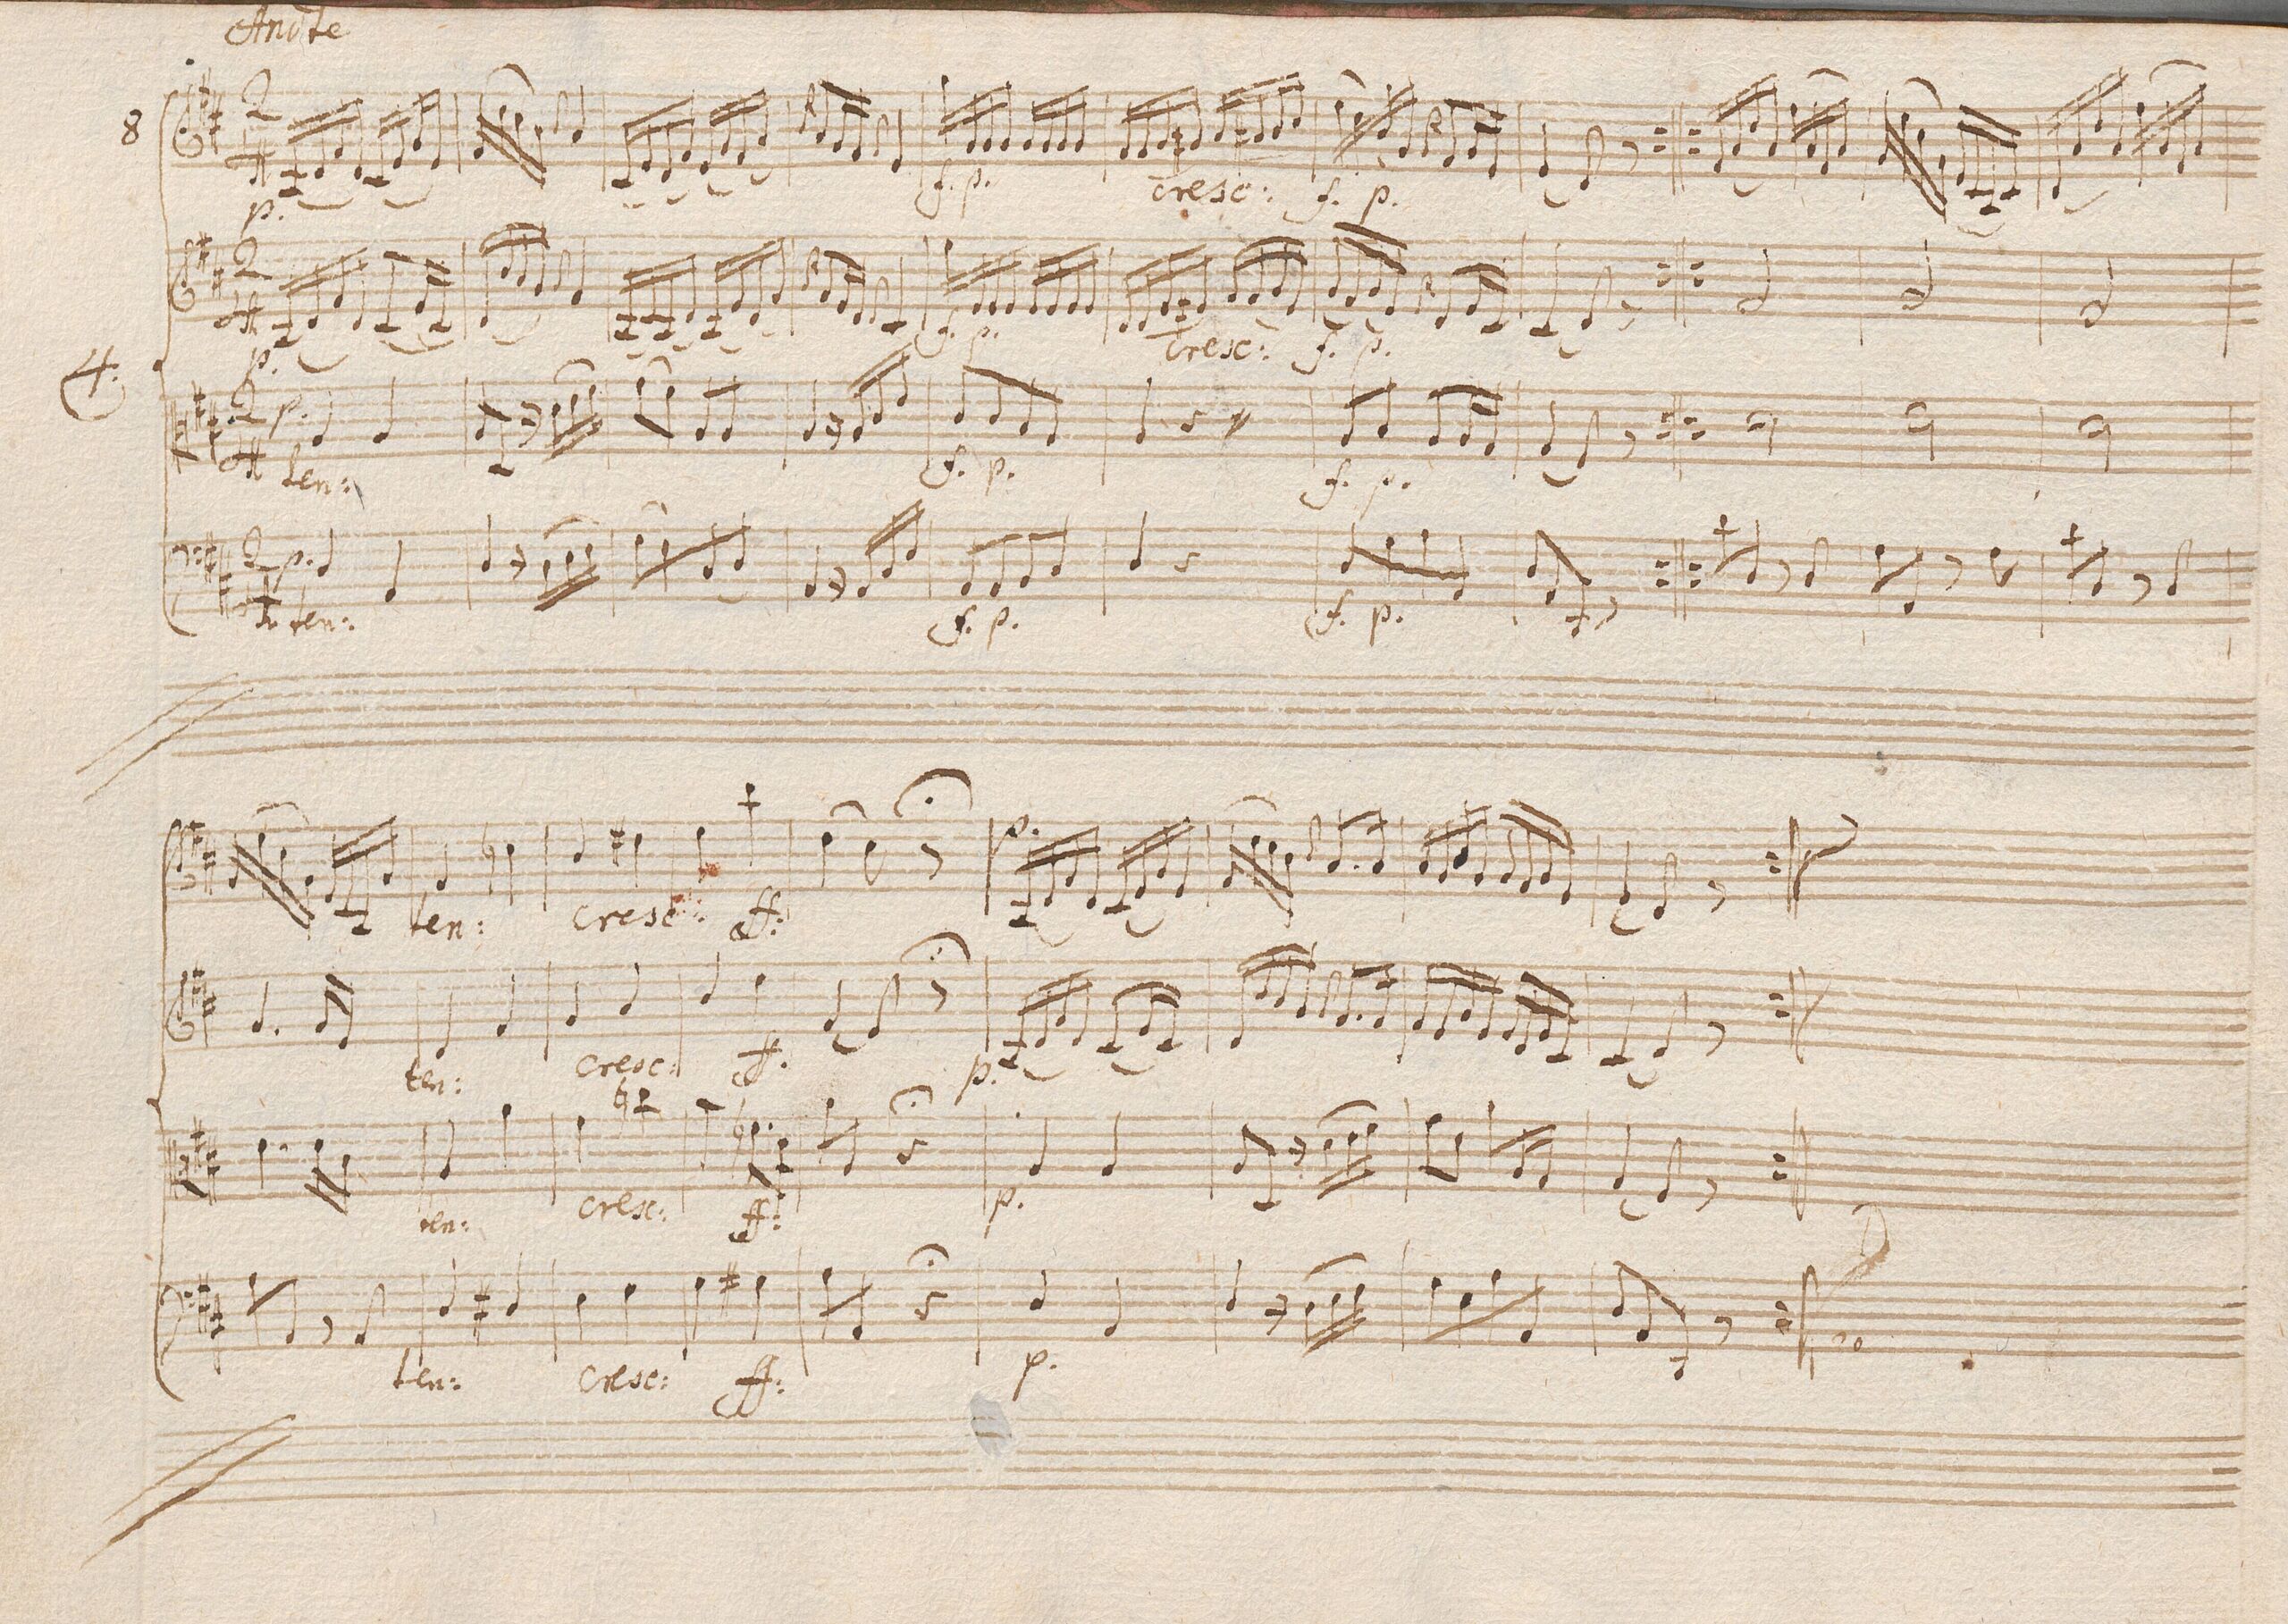 Andte
8
2
4
p. f. p. cresc: f. p.
2
4
p. f. p. cresc: f. p.
4.
2 p.
4 ten: f. p. f. p.
2 p.
4 ten: f. p. f. p.
p.
ten: cresc: ff:
ten: cresc: ff. p.
ten: cresc: ff: p.
ten: cresc: ff: p.